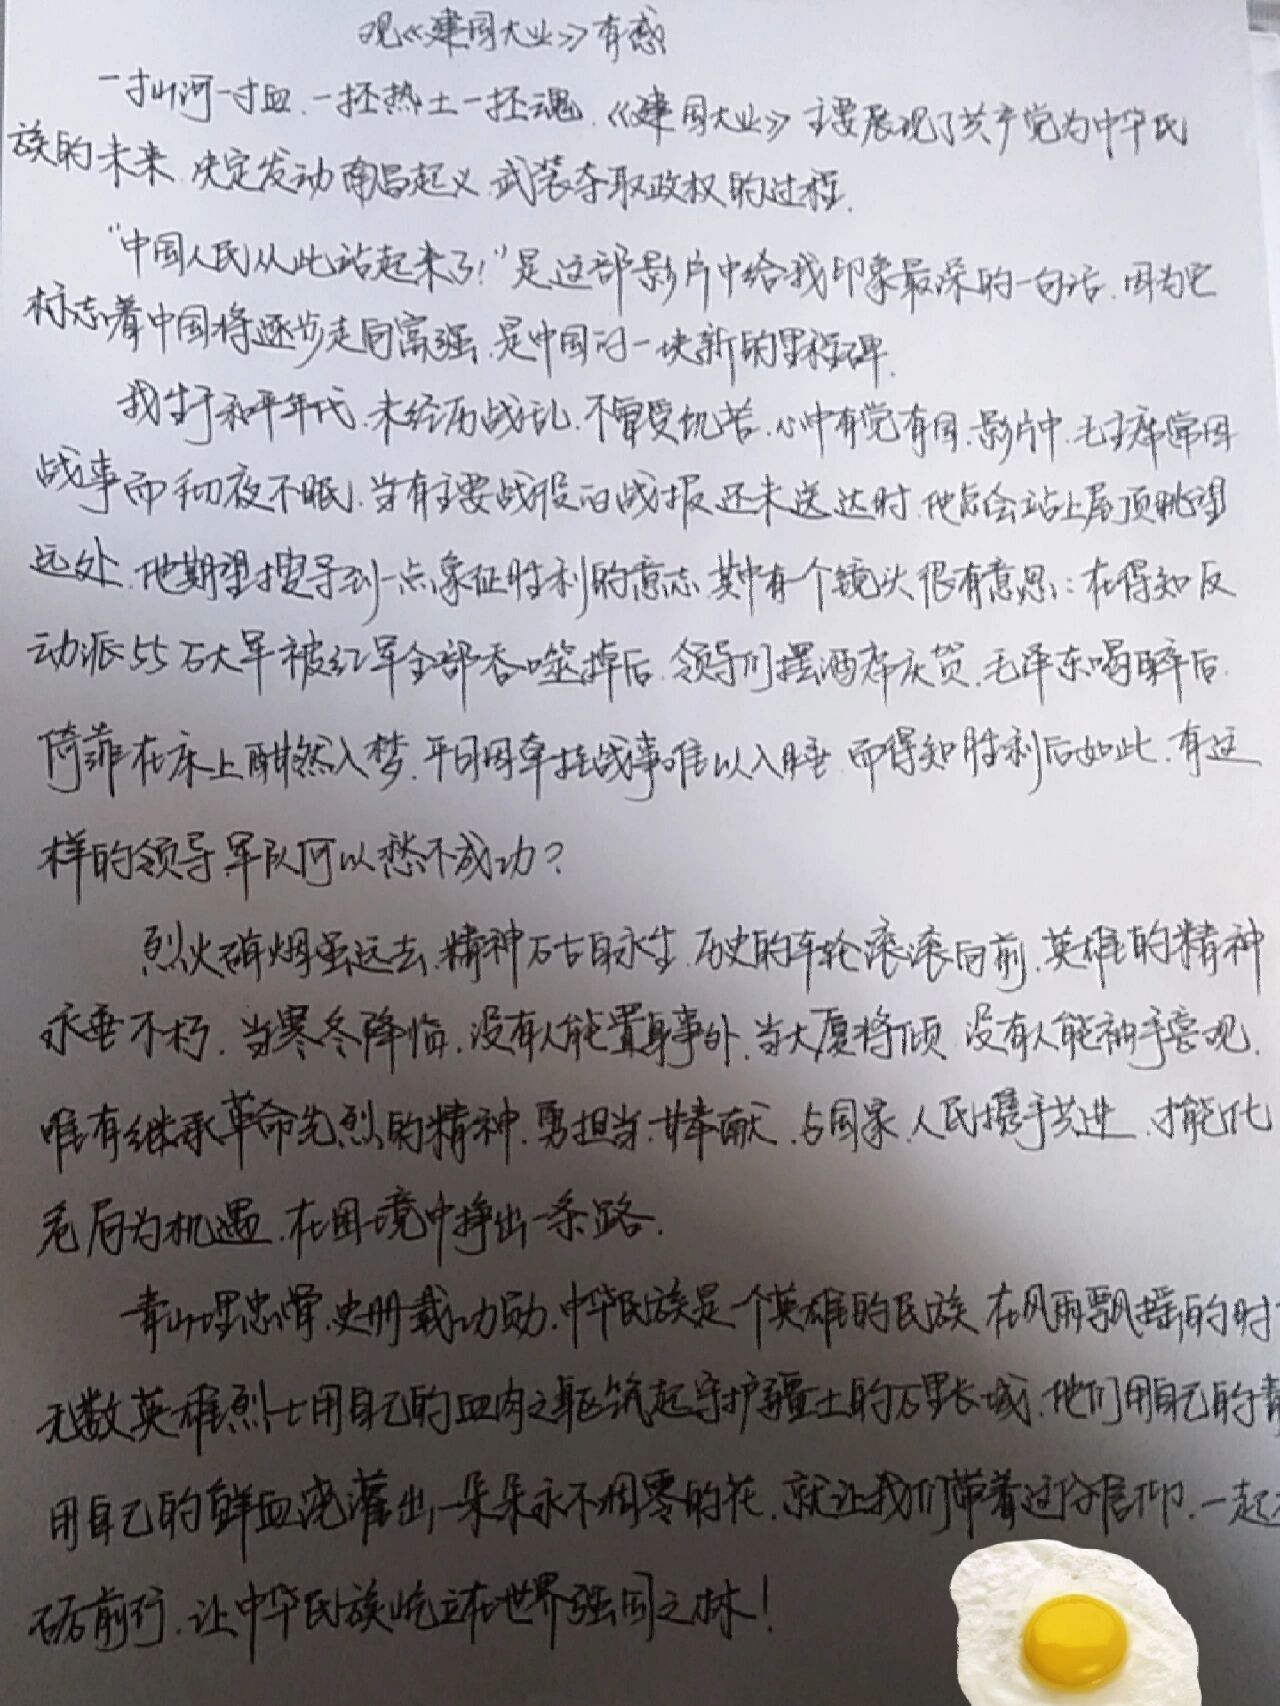 观《建国大业》有感
一寸山河一寸血,一抔热土一抔魂,《建国大业》主要展现了共产党为中华民
族的未来,决定发动南昌起义,武装夺取政权的过程.
“中国人民从此站起来了!”是这部影片中给我印象最深的一句话,因为它
标志着中国将逐步走向富强,是中国的一块新的里程碑.
我生于和平年代,未经历战乱,不曾受饥苦,心中有党有国,影片中,毛主席常因
战事而彻夜不眠,当有主要战役的战报还未送达时,他总会站上屋顶眺望
远处,他期望搜寻到一点象征胜利的意志,其中有一个镜头很有意思:在得知反
动派55万大军被红军全部吞噬掉后,领导们摆酒席庆贺,毛泽东喝醉后,
倚靠在床上酣然入梦,平日因牵挂战事难以入睡,而得知胜利后如此,有这
样的领导,军队何以愁不成功?
烈火硝烟虽远去,精神万古自永生,历史的车轮滚滚向前,英雄的精神
永垂不朽,当寒冬降临,没有人能置身事外,当大厦将倾,没有人能袖手旁观,
唯有继承革命先烈的精神,勇担当,甘奉献,与国家,人民携手共进,才能化
危局为机遇,在困境中挣出一条路.
青山埋忠骨,史册载功勋,中华民族是一个英雄的民族,在风雨飘摇的时
无数英雄烈士用自己的血肉之躯筑起守护疆土的万里长城,他们用自己的青
用自己的鲜血浇灌出一朵朵永不凋零的花,就让我们带着这份信仰,一起
砺前行,让中华民族屹立在世界强国之林!